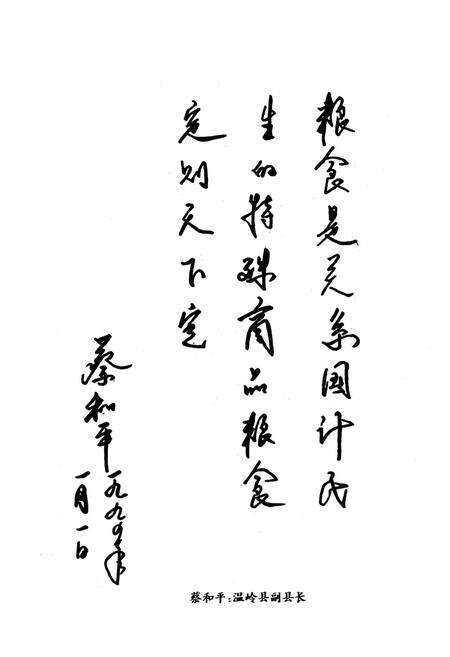 粮食是关系国计民
生的特殊商品粮食
定则天下定
蔡和平
一九九四年
一月一日
蔡和平:温岭县副县长